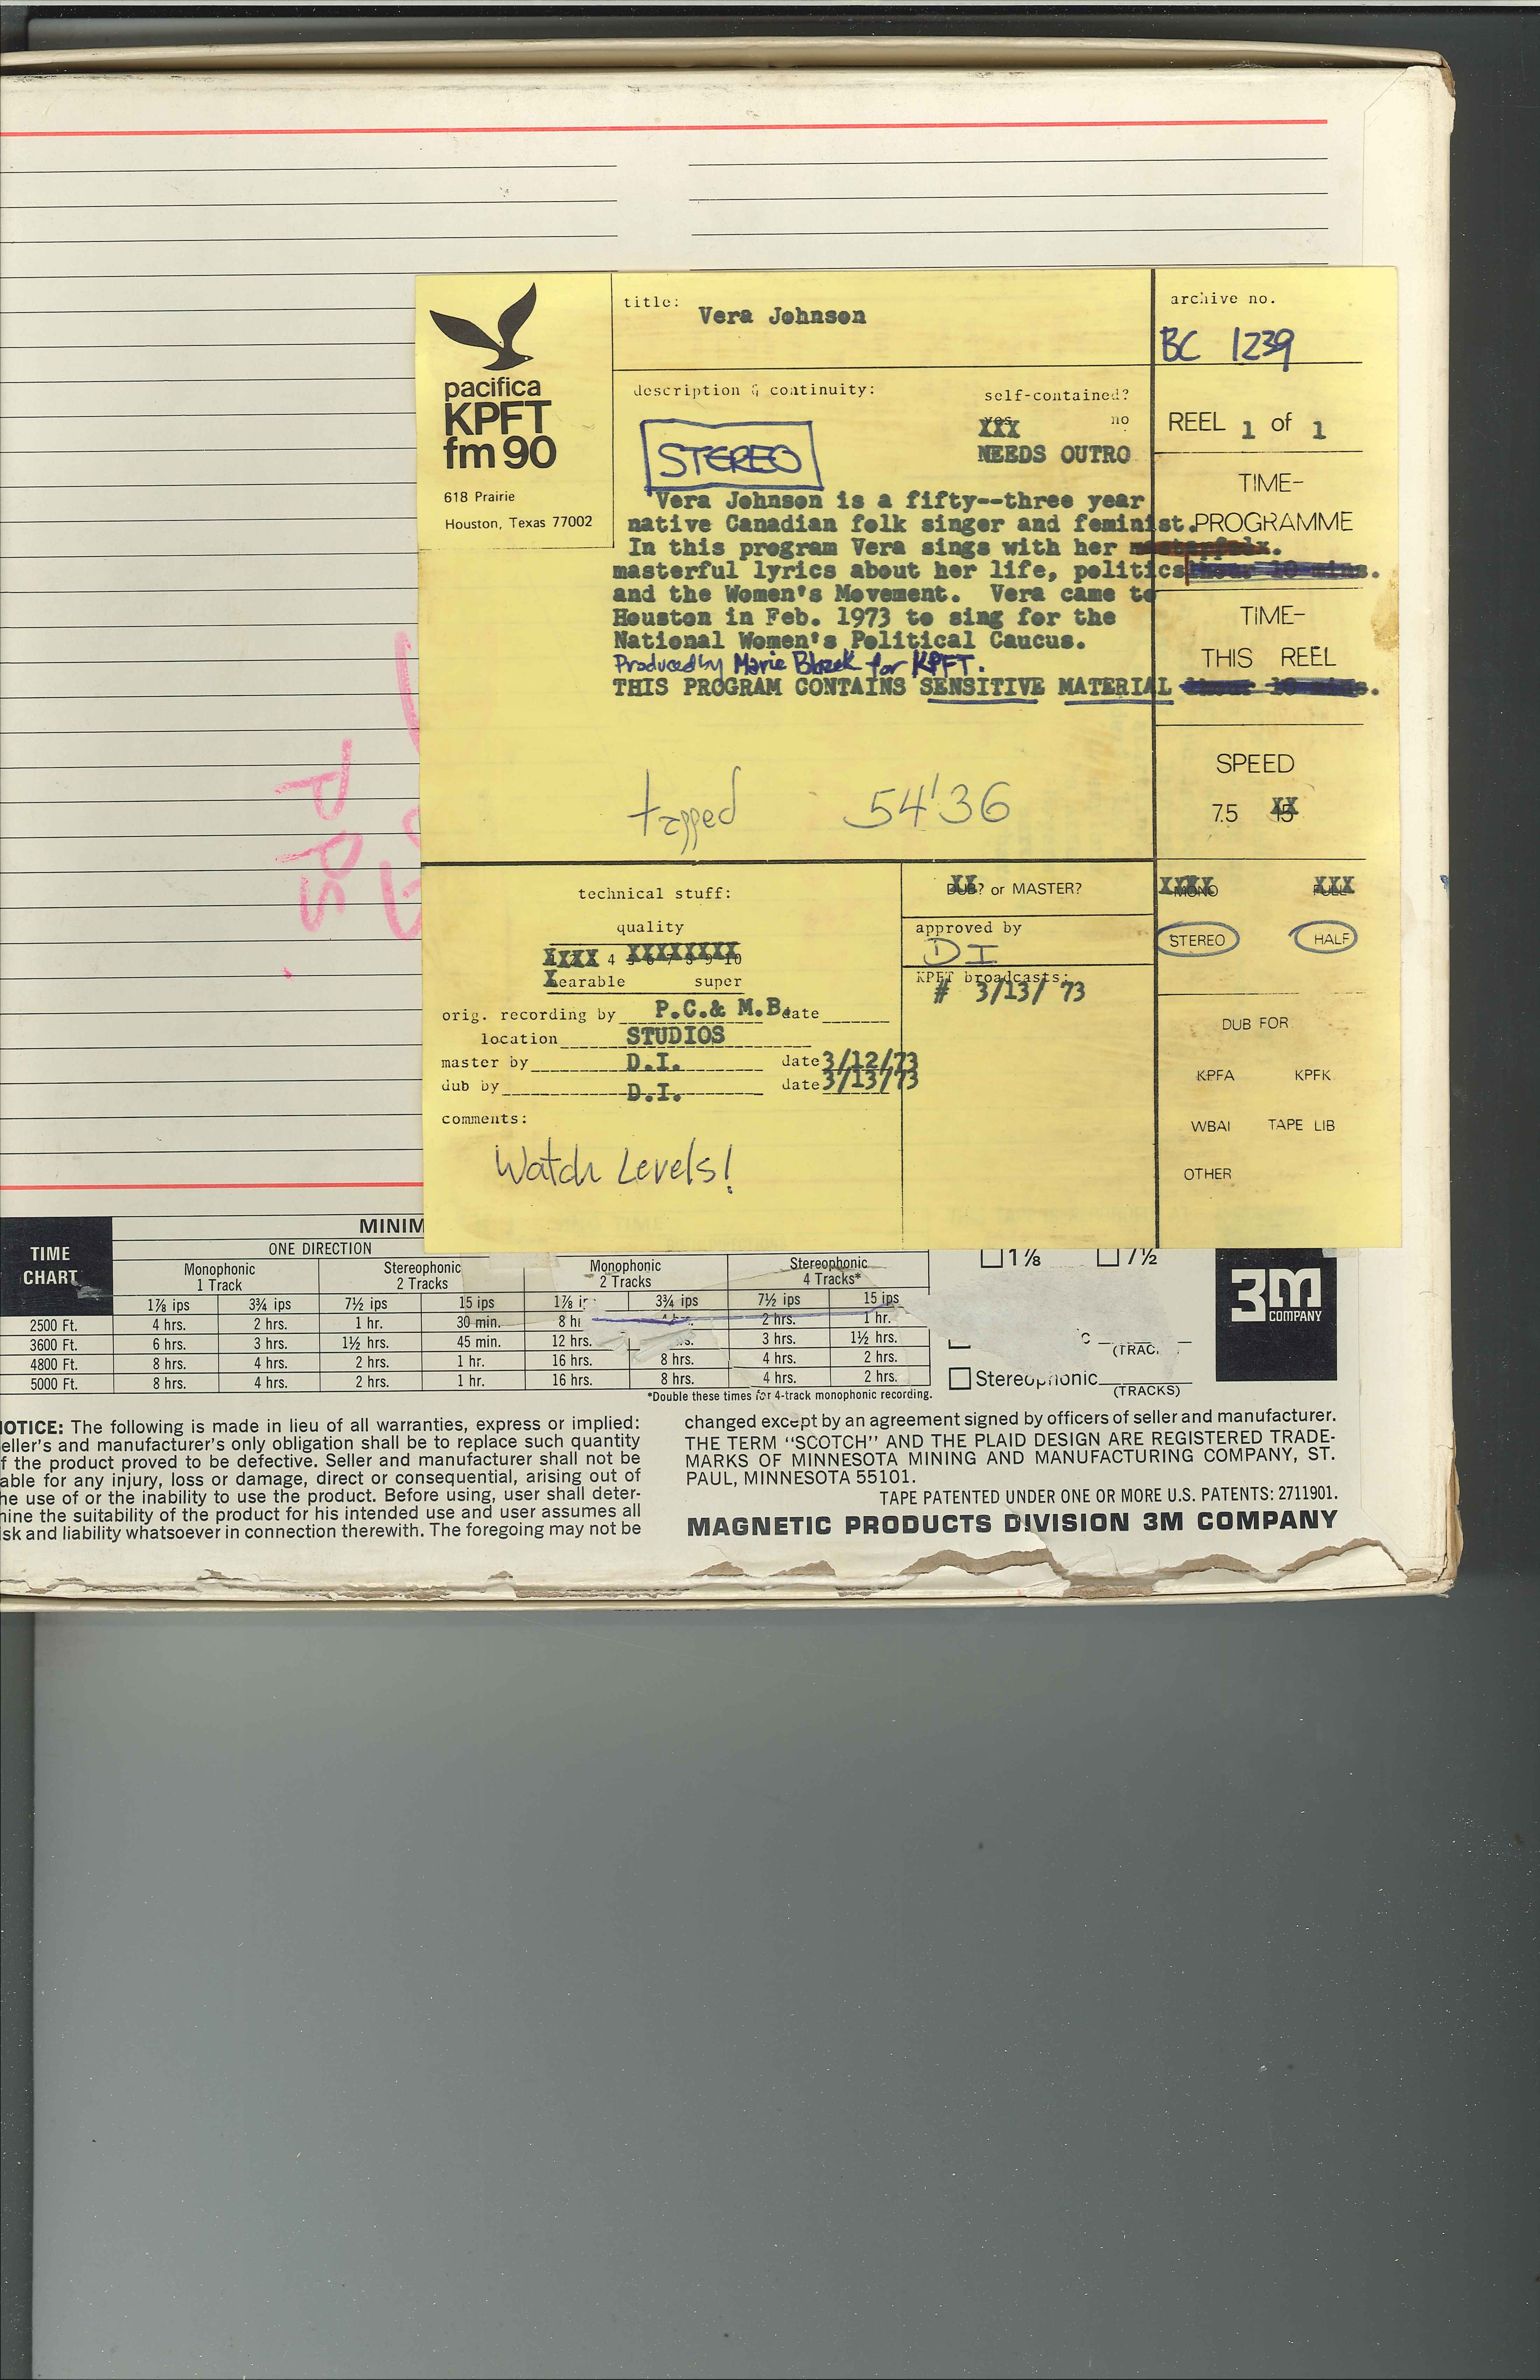 pacifica
KPFT
fm 90
618 Prairie
Houston, Texas 77002
title: Vera Johnson
archive no.
BC 1239
description & continuity:
self-contained?
yes no
NEEDS OUTRO
STEREO
REEL 1 of 1
Vera Johnson is a fifty--three year
native Canadian folk singer and feminist.
In this program Vera sings with her
masterful lyrics about her life, politics
and the Women's Movement. Vera came to
Houston in Feb. 1973 to sing for the
National Women's Political Caucus.
Produced by Marie Blazek for KPFT.
THIS PROGRAM CONTAINS SENSITIVE MATERIAL
TIME-
PROGRAMME
1hour 10 mins.
TIME-
THIS REEL
1hour 10 mins.
tapped 54'36
SPEED
7.5 15
technical stuff:
quality
1 2 3 4 5 6 7 8 9 10
earable super
orig. recording by P.C.& M.B. date
location STUDIOS
master by D.I. date 3/12/73
dub by D.I. date 3/13/73
comments:
Watch Levels!
DUB? or MASTER?
approved by
DI
KPFT broadcasts:
# 3/13/ 73
MONO FULL
STEREO HALF
DUB FOR
KPFA KPFK
WBAI TAPE LIB
OTHER
TIME
CHART
MINIM
ONE DIRECTION
Monophonic
1 Track
Stereophonic
2 Tracks
Monophonic
2 Tracks
Stereophonic
4 Tracks*
1⅞ ips 3¾ ips 7½ ips 15 ips 1⅞ ip 3¾ ips 7½ ips 15 ips
2500 Ft. 4 hrs. 2 hrs. 1 hr. 30 min. 8 h 2 hrs. 1 hr.
3600 Ft. 6 hrs. 3 hrs. 1½ hrs. 45 min. 12 hrs. 3 hrs. 1½ hrs.
4800 Ft. 8 hrs. 4 hrs. 2 hrs. 1 hr. 16 hrs. 8 hrs. 4 hrs. 2 hrs.
5000 Ft. 8 hrs. 4 hrs. 2 hrs. 1 hr. 16 hrs. 8 hrs. 4 hrs. 2 hrs.
*Double these times for 4-track monophonic recording.
1⅞ 7½
(TRAC
Stereophonic
(TRACKS)
3M
COMPANY
OTICE: The following is made in lieu of all warranties, express or implied:
eller's and manufacturer's only obligation shall be to replace such quantity
f the product proved to be defective. Seller and manufacturer shall not be
able for any injury, loss or damage, direct or consequential, arising out of
he use of or the inability to use the product. Before using, user shall deter-
ine the suitability of the product for his intended use and user assumes all
sk and liability whatsoever in connection therewith. The foregoing may not be
changed except by an agreement signed by officers of seller and manufacturer.
THE TERM “SCOTCH” AND THE PLAID DESIGN ARE REGISTERED TRADE-
MARKS OF MINNESOTA MINING AND MANUFACTURING COMPANY, ST.
PAUL, MINNESOTA 55101.
TAPE PATENTED UNDER ONE OR MORE U.S. PATENTS: 2711901.
MAGNETIC PRODUCTS DIVISION 3M COMPANY